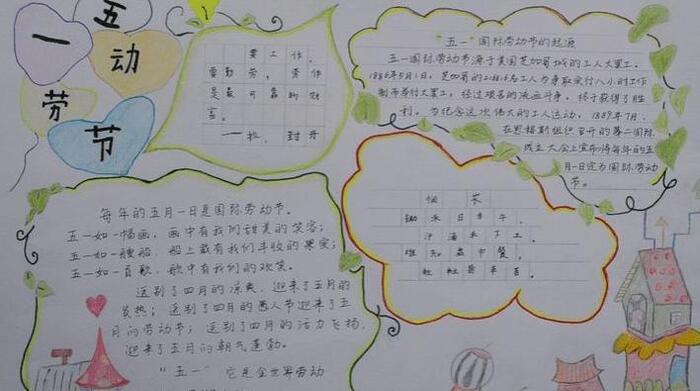 五一
劳动节
要工作，
要勤劳，劳作
是最可靠的财
富。
"五一"国际劳动节的起源
五一国际劳动节源于美国芝加哥城的工人大罢工。
1886年5月1日，芝加哥的216000名工人为争取实行八小时工作
制而举行大罢工，经过艰苦的流血斗争，终于获得了胜
利。为纪念这次伟大的工人运动，1889年7月，
在恩格斯组织召开的第二国际
成立大会上宣布将每年的五
月一日定为国际劳动
节。
锄禾日当午，
汗滴禾下土。
谁知盘中餐，
粒粒皆辛苦。
每年的五月一日是国际劳动节。
五一如一幅画，画中有我们甜美的笑容；
五一如一艘船，船上载有我们丰收的果实；
五一如一首歌，歌中有我们的欢笑。
送别了四月的凉爽，迎来了五月的
炎热；送别了四月的愚人节迎来了五
月的劳动节；送别了四月的活力飞扬，
迎来了五月的朝气蓬勃。
"五一"它是全世界劳动